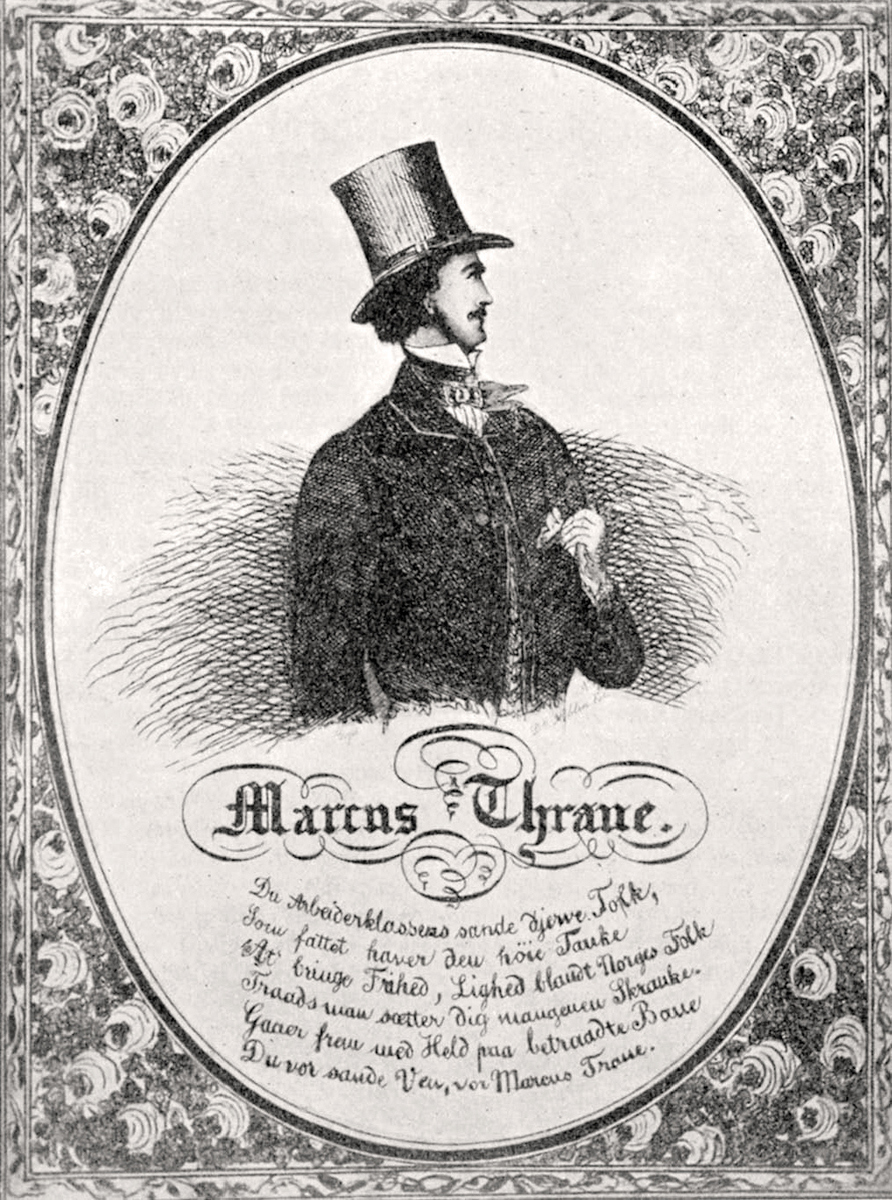 Marcus Thrane.
Du Arbeiderklassens sande djerve Tolk,
Som fattet haver den höie Tanke
At bringe Frihed, Lighed blandt Norges Folk
Traads man sætter dig mangenen Skranke.
Gaaer frem med Held paa betraadte Bane
Du vor sande Ven, vor Marcus Trane.